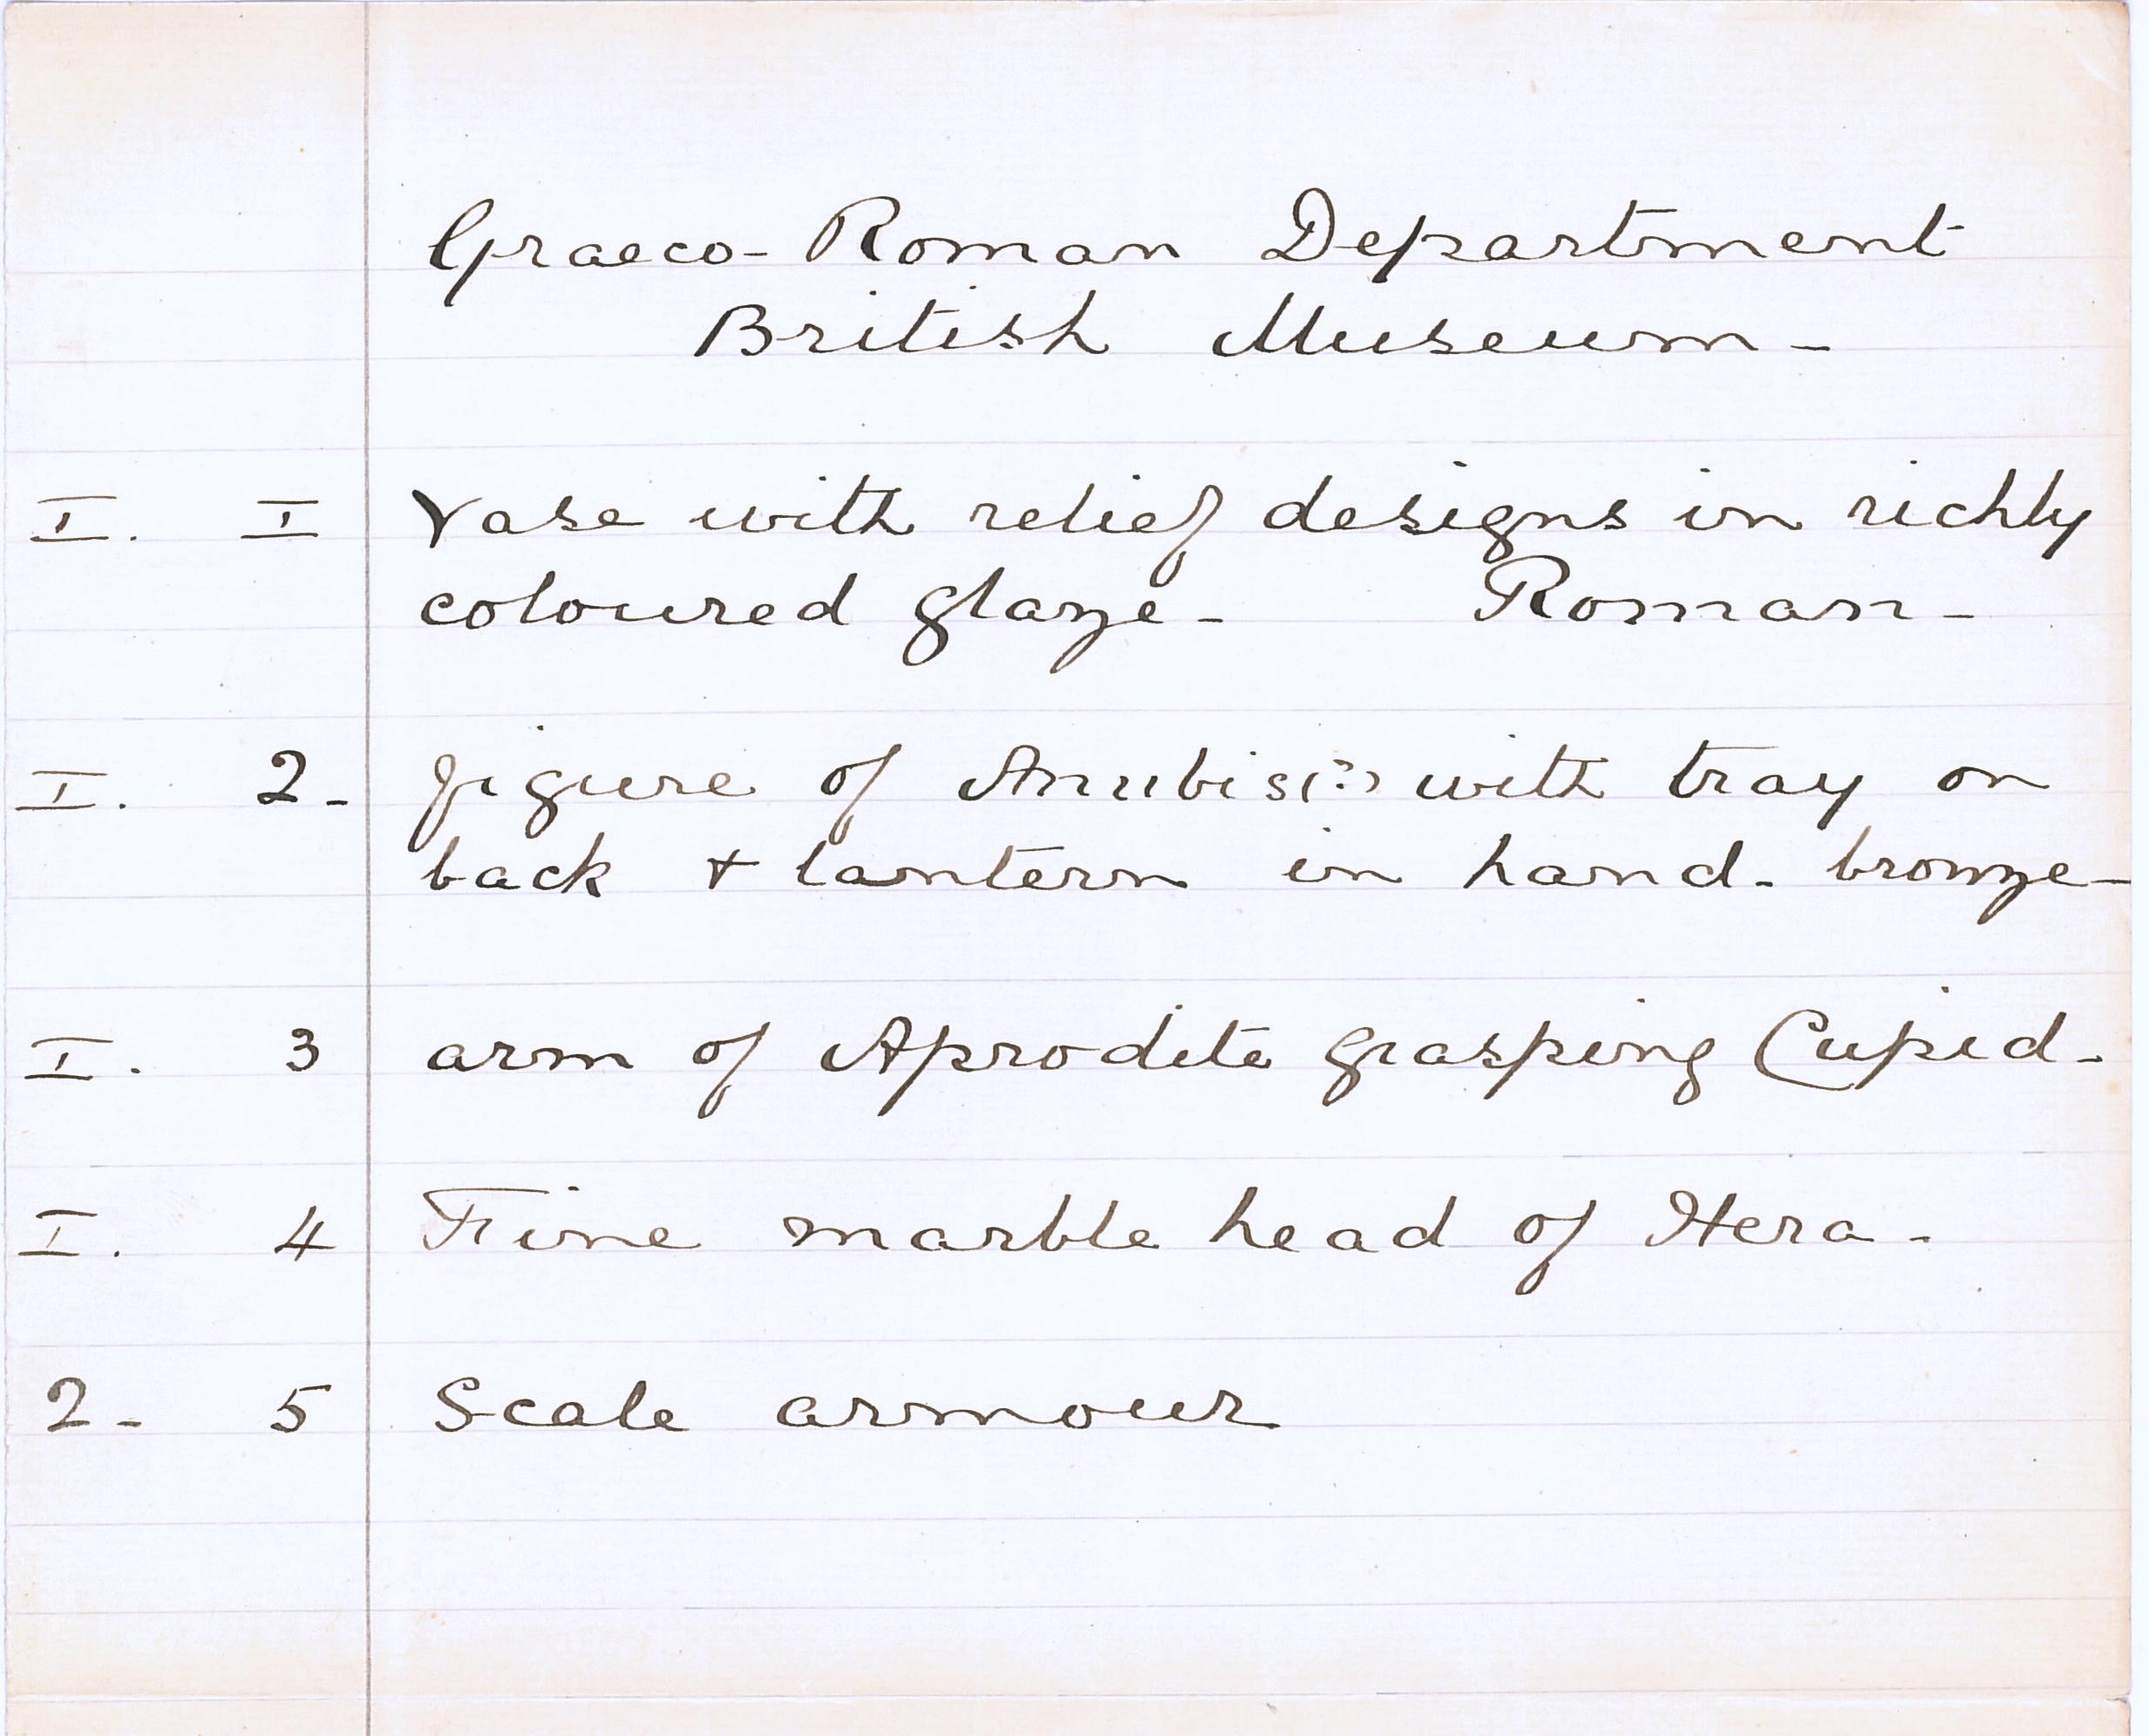 Graeco-Roman Department
British Museum -
I. I Vase with relief designs in richly
coloured glaze - Roman -
I. 2 - figure of Anubis (?) with tray on
back + lantern in hand - bronze -
I. 3 arm of Aprodite grasping Cupid -
I. 4 Fine marble head of Hera -
2 - 5 Scale armour